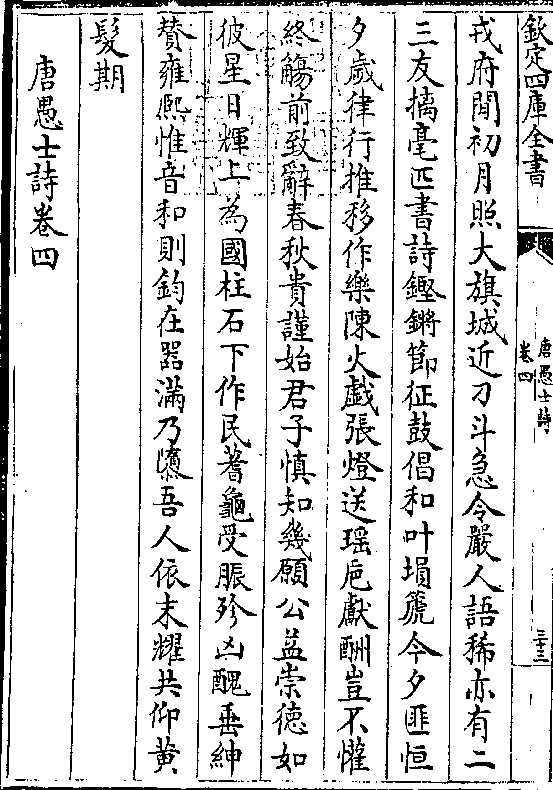 欽定四庫全書
唐愚士詩
卷四
三十三
戎府開初月照大旗城近刀斗急令嚴人語稀亦有二
三友摛毫匹書詩鏗鏘節征鼓倡和叶塤篪今夕匪恒
夕歲律行推移作樂陳火戯張燈送瑶卮獻酬豈不懽
終觴前致辭春秋貴謹始君子慎知幾願公益崇徳如
彼星日輝上為國柱石下作民蓍龜受脤殄凶醜垂紳
贊雍熈惟音和則鈞在器滿乃攲吾人依末耀共仰黄
髮期
唐愚士詩卷四